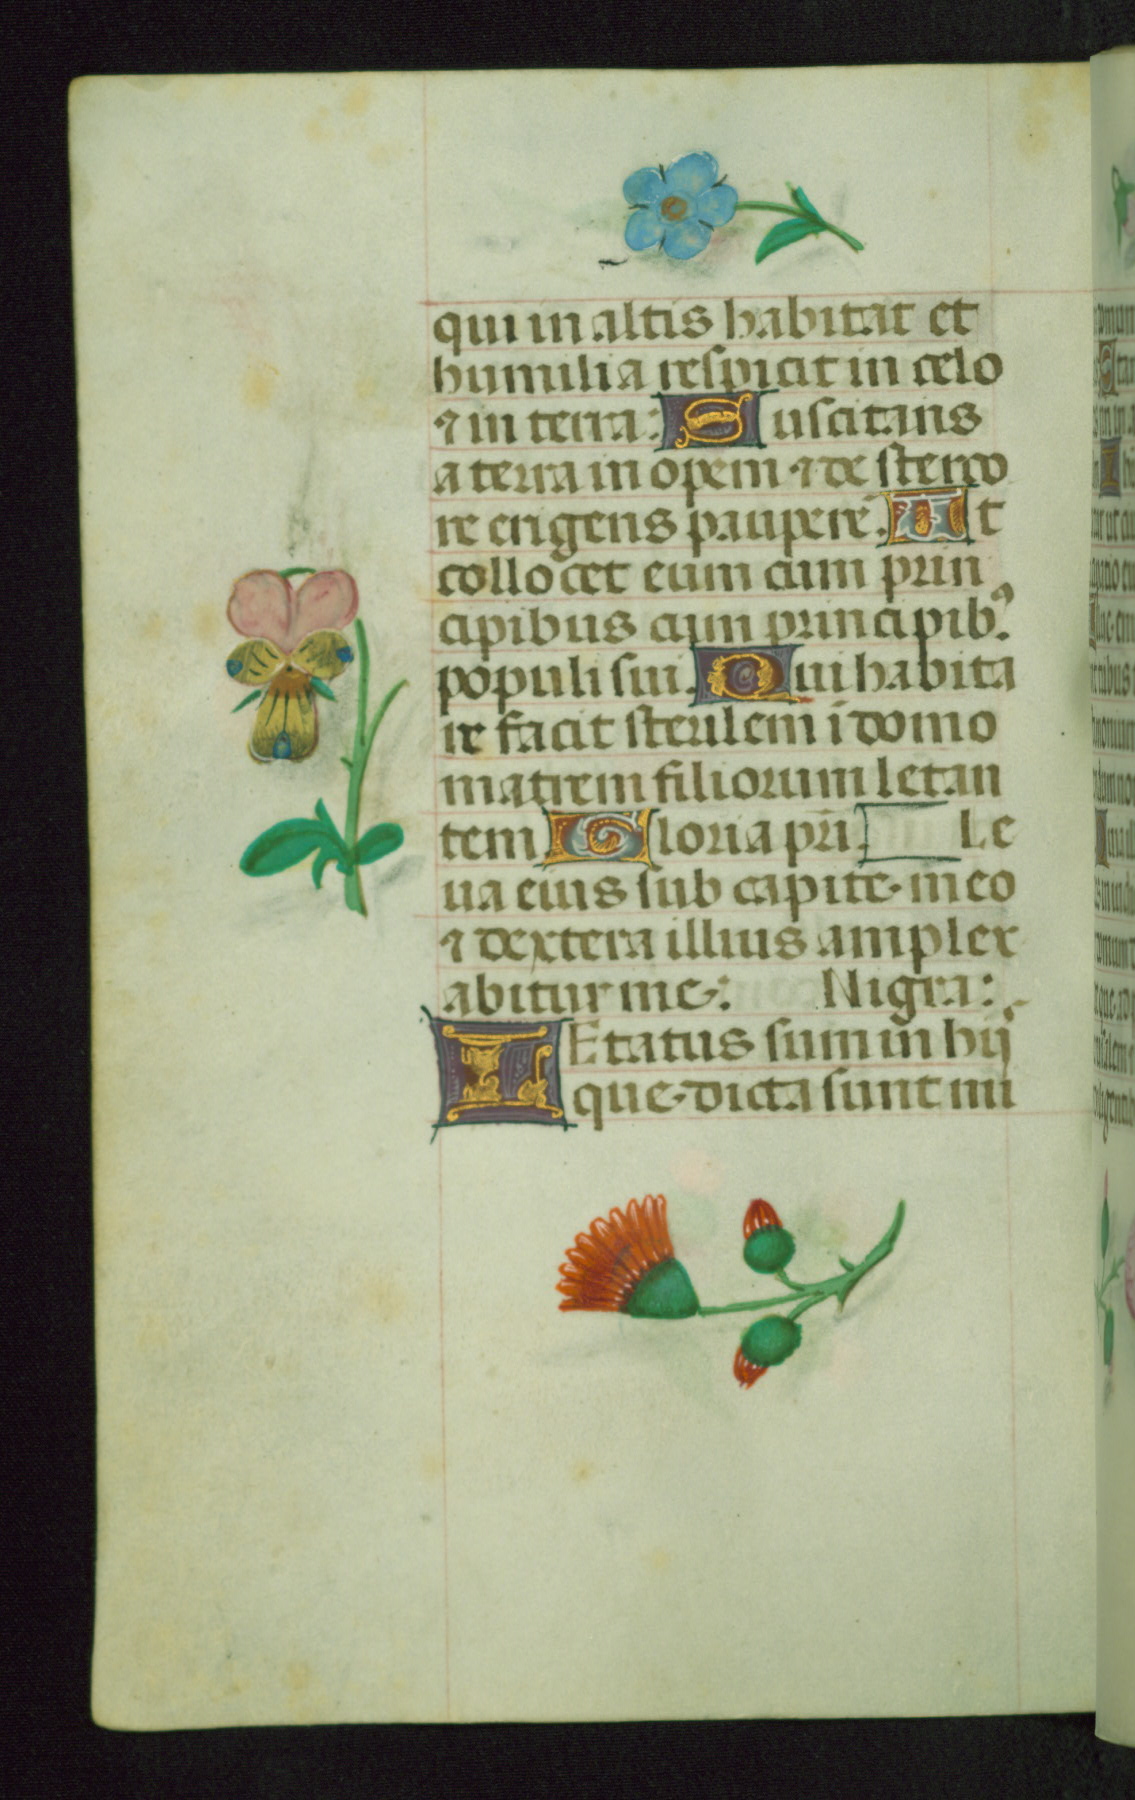 qui in altis habitat et
humilia respicit in celo
⁊ in terra: Suscitans
a terra in opem ⁊ de sterco
re erigens pauperẽ. Ut
collocet eum cum prin
cipibus cum principibꝰ.
populi sui. Qui habita
re facit sterilem ĩ domo
matrem filiorum letan
tem Gloria pr̃i. Le
ua eius sub capite meo
⁊ dextera illius amplex
abitur me: Nigra:
LEtatus sum in hij
que dicta sunt mi